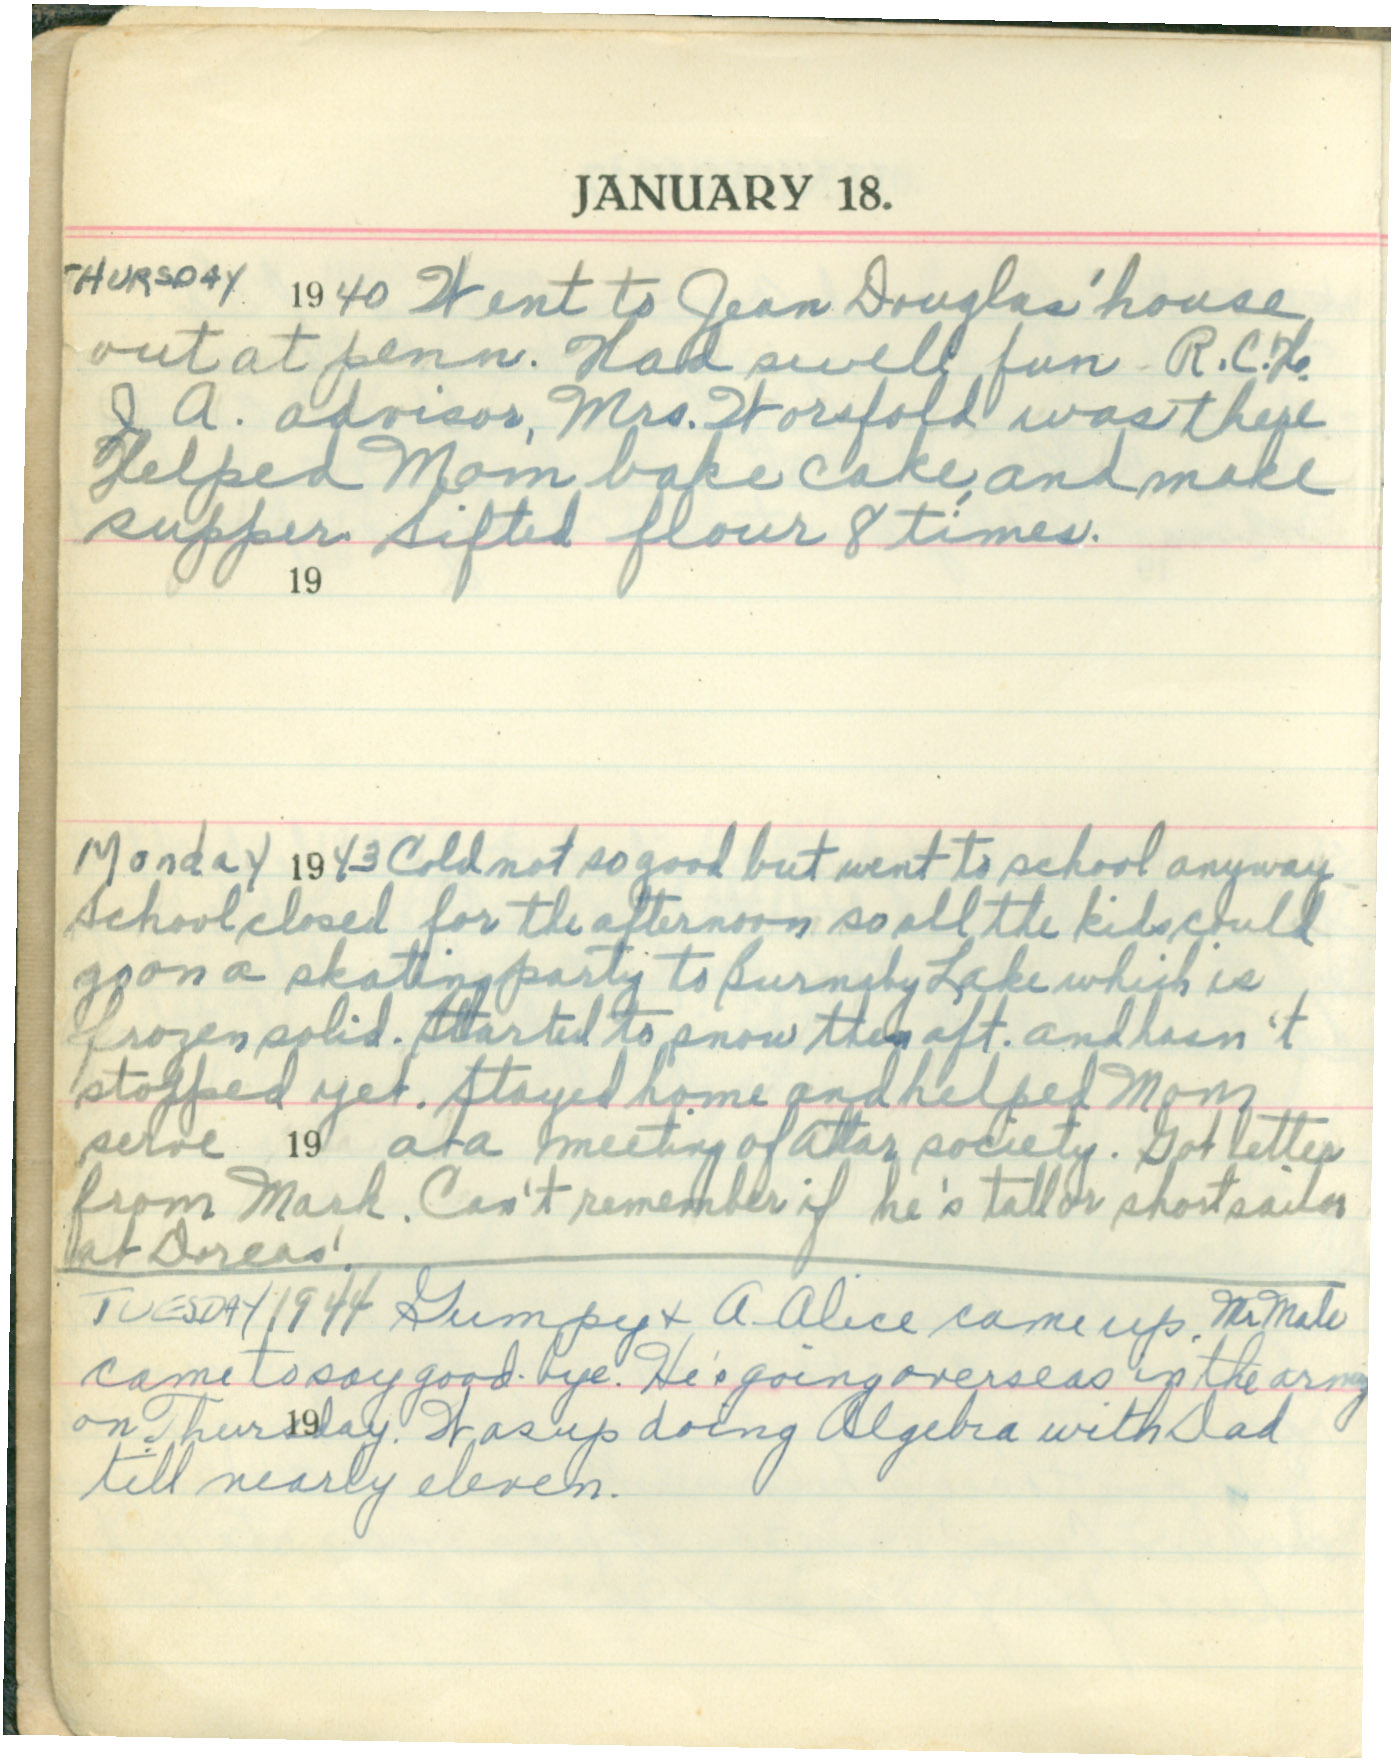 JANUARY 18.
THURSDAY 1940 Went to Jean Douglas' house
out at penn. Had swell fun. R.C.H.
J A. advisor, Mrs. Worsfold was there
Helped Mom bake cake, and make
supper. Sifted flour 8 times.
19
Monday 1943 Cold not so good but went to school anyway
School closed for the afternoon so all the kids could
go on a skating party to Burnaby Lake which is
frozen solid. Started to snow then aft. and hasn't
stopped yet. Stayed home and helped Mom
serve 19 at a meeting of Altar society. Got letter
from Mark. Can't remember if he's tall or short sailor
at Doreas'.
TUESDAY 1944 Gumpy & A. Alice came up. Mr.
came to say good-bye. He's going overseas in the army
on Thursday. 19 Was up doing Algebra with Dad
till nearly eleven.